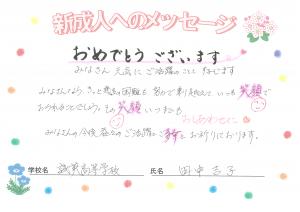 新成人へのメッセージ
おめでとうございます
みなさん 元気に ご活躍のことと 存じます
みなさんなら、きっと どんな困難も 努力で乗り越えて いつも 笑顔で
おられることでしょう。その 笑顔 いつまでも
おしあわせに
みなさんの今後 益々の ご活躍を お祈りしております。
学校名 高等学校 氏名 田中